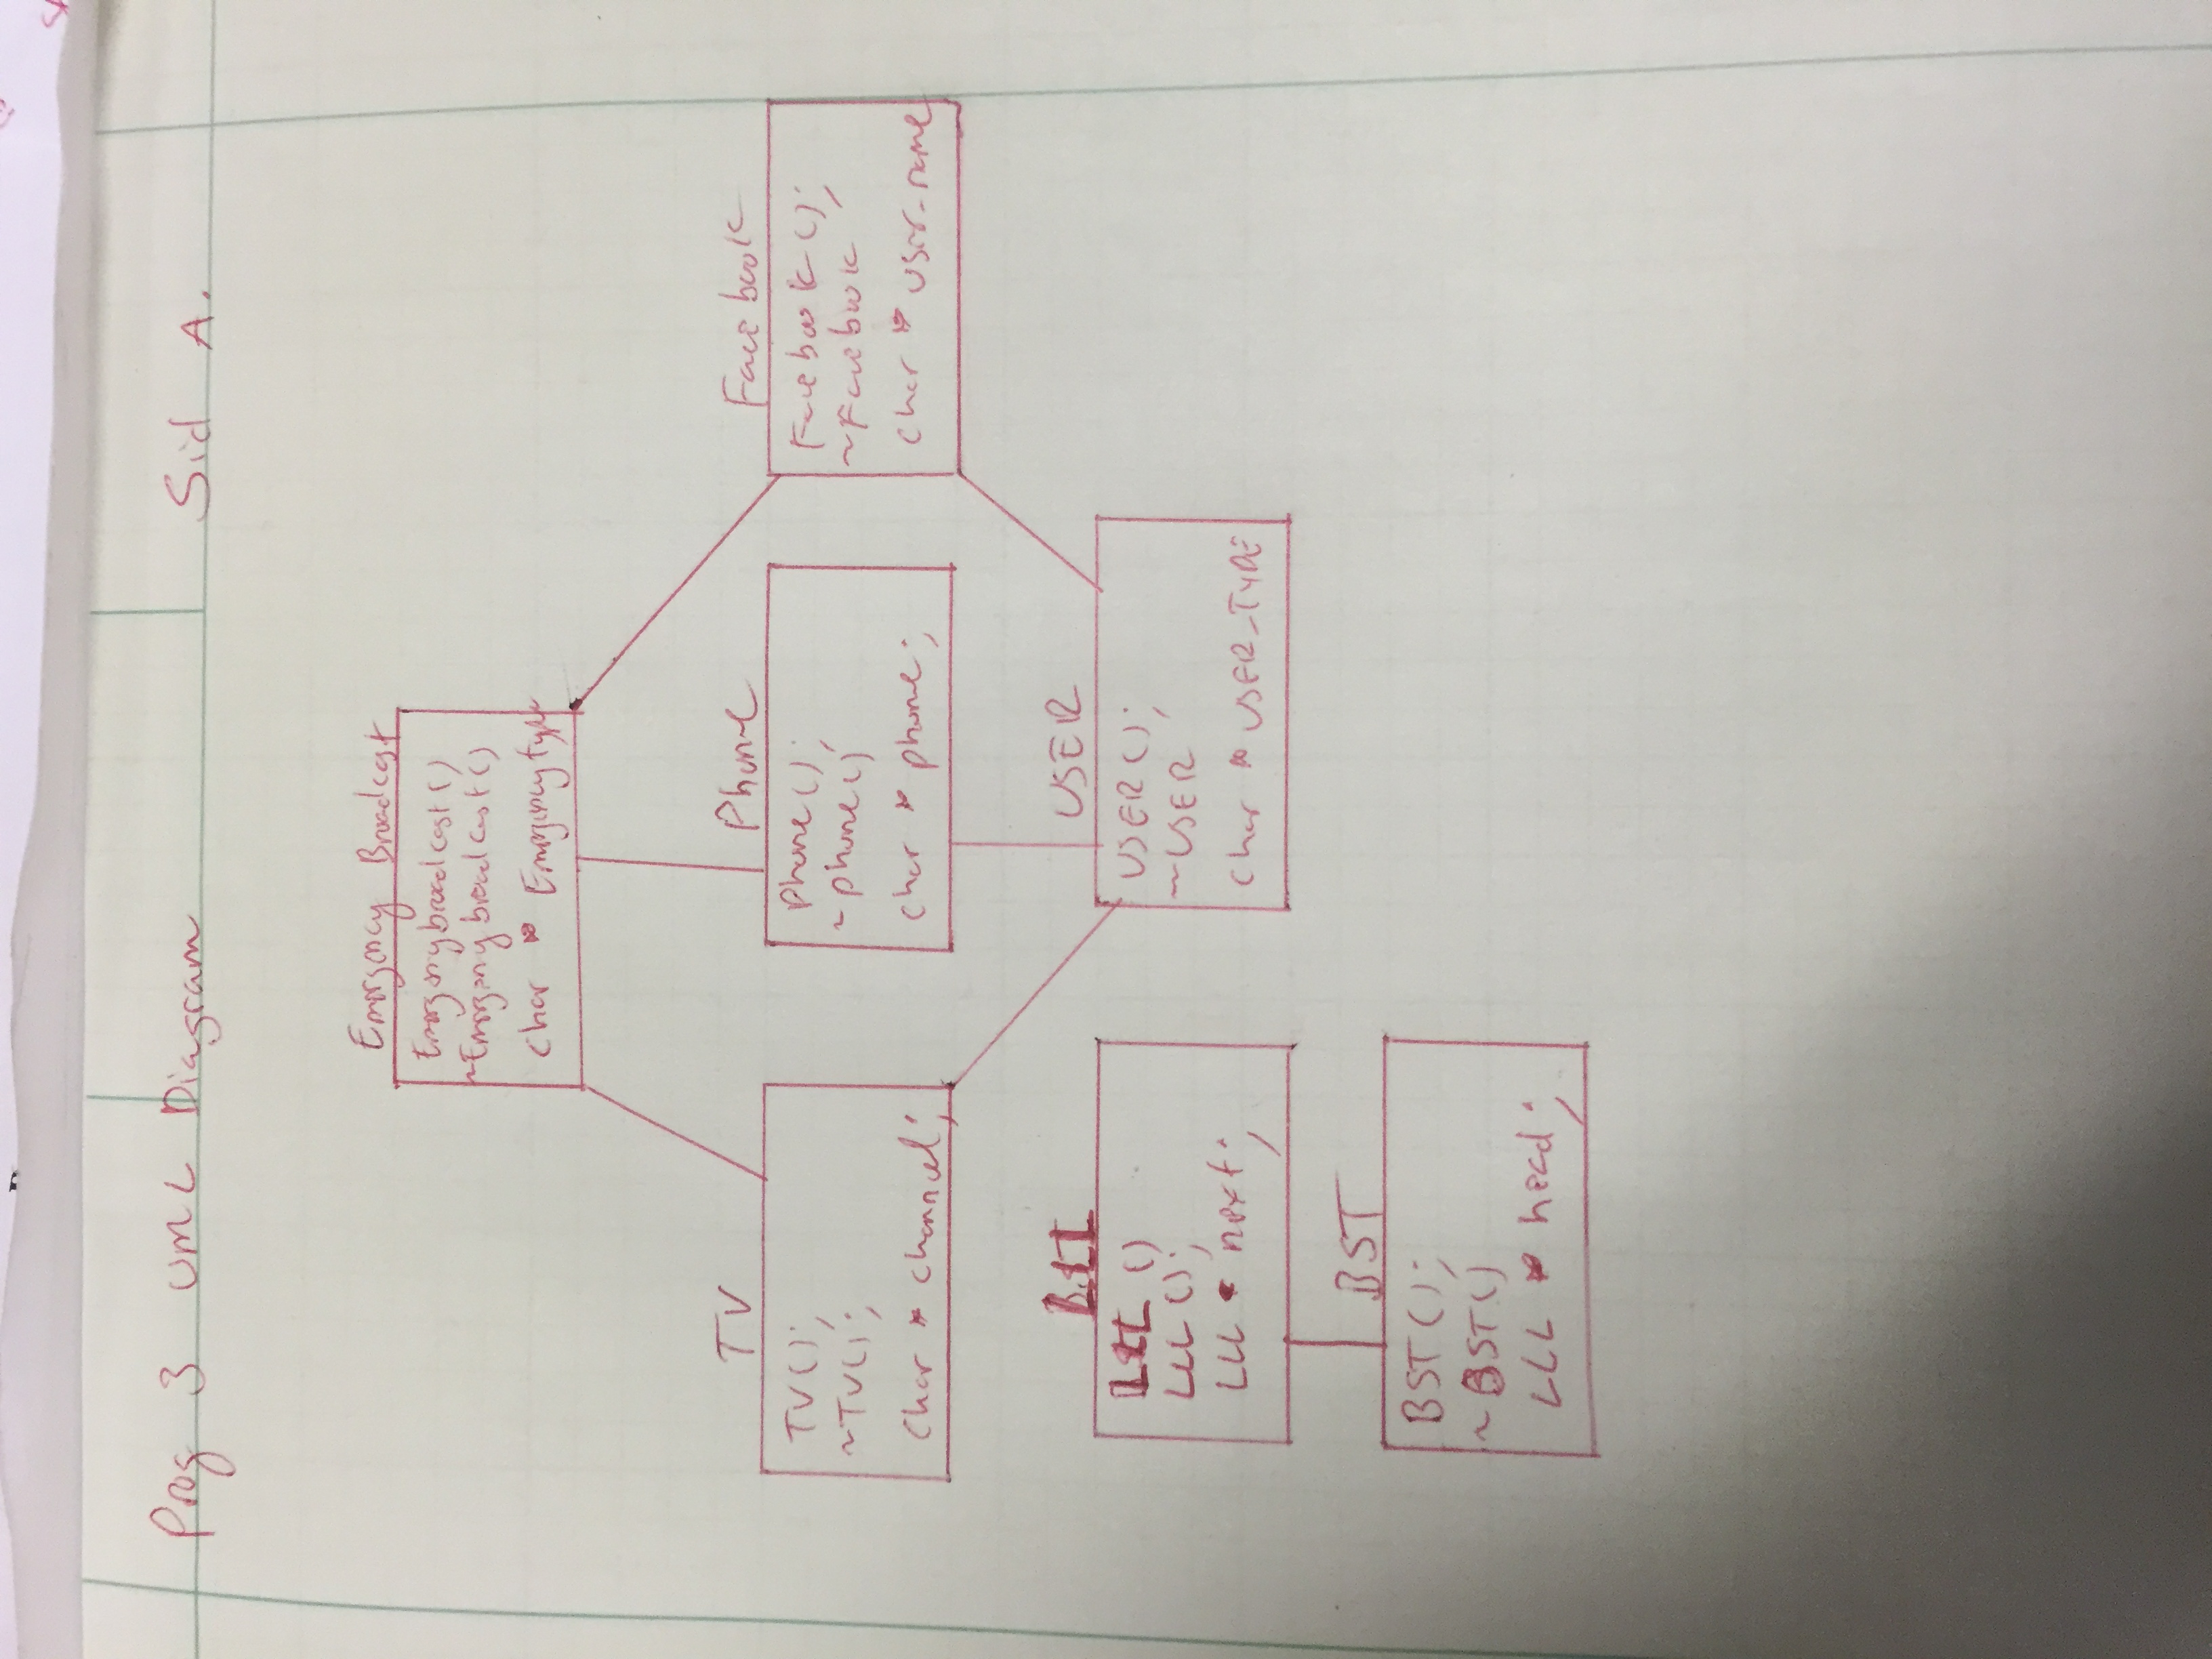 Prog 3 UML Diagram
Sid A.
Emergency Broadcast
Emergencybroadcast()
~Emergencybroadcast()
char * Emergencytype
TV
TV();
~TV();
Char * channel;
Phone
phone();
~phone()
char * phone;
Facebook
Facebook();
~Facebook
char * user_name
LLL ()
LLL();
LLL * next;
USER
USER();
~USER
char * USER_TYPE
BST
BST();
~BST()
LLL * head;